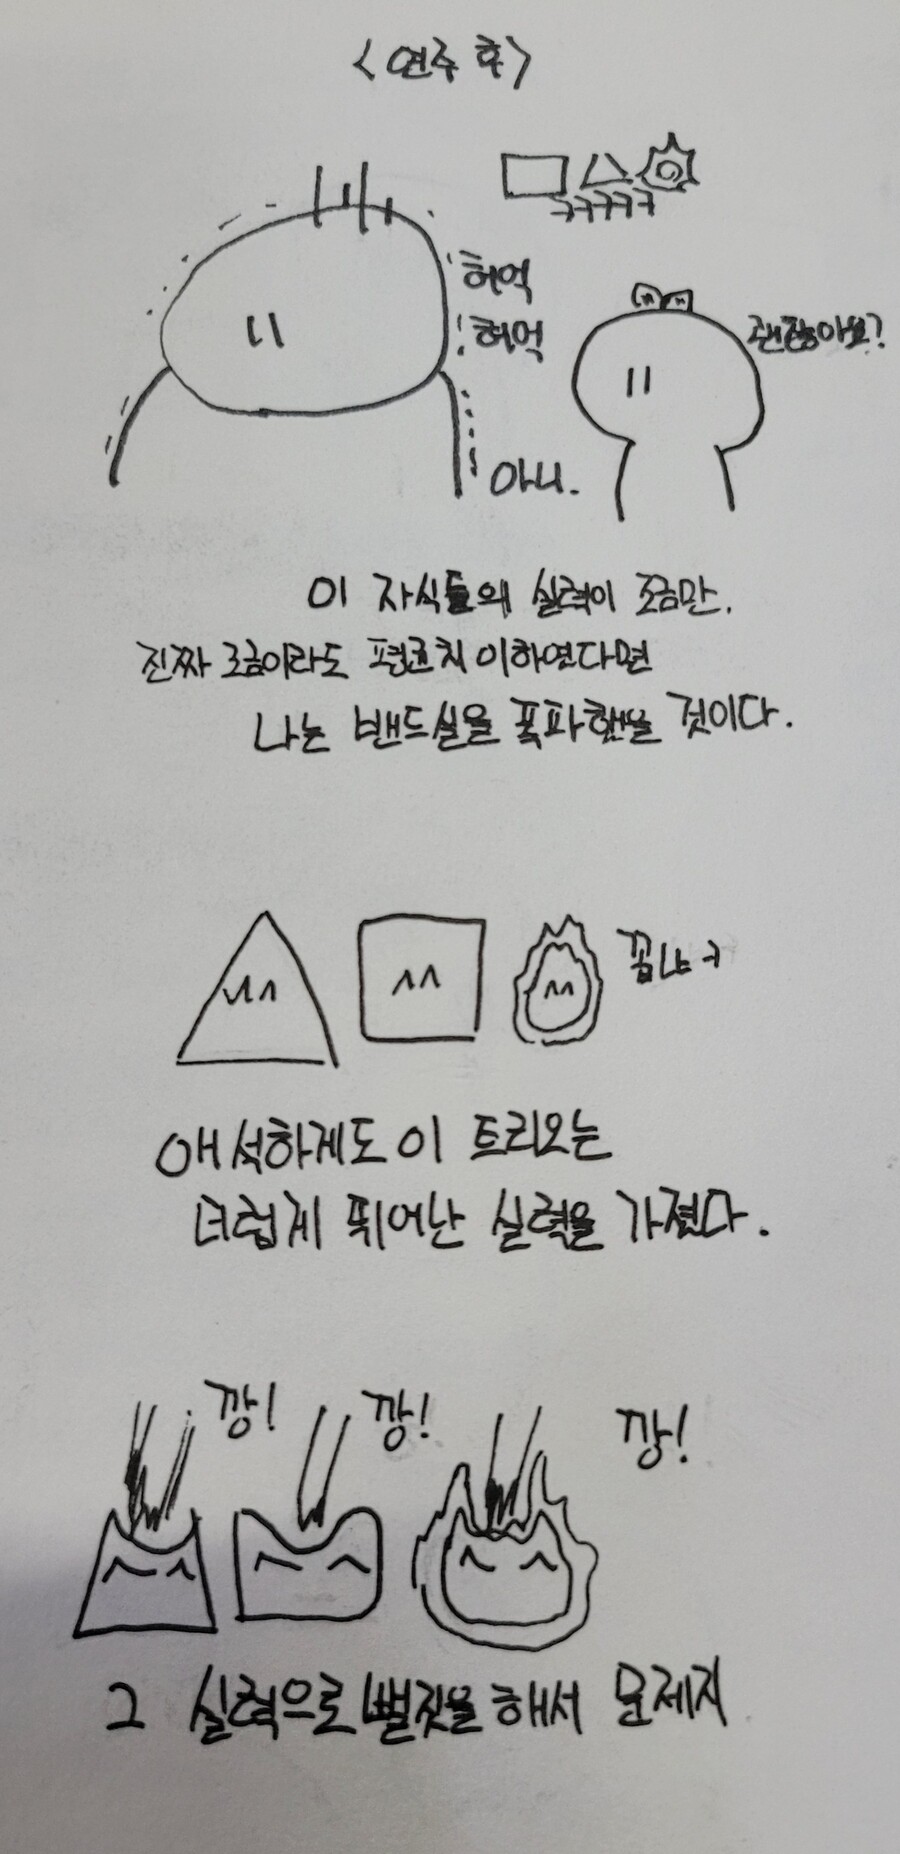 <연주 후>
ㅋㅋㅋㅋㅋ
허억
허억
괜찮아요?
아니.
이 자식들의 실력이 조금만,
진짜 조금이라도 평균치 이하였다면
나는 밴드실을 폭파했을 것이다.
꼽냐ㅋ
애석하게도 이 트리오는
더럽게 뛰어난 실력을 가졌다.
깡!
깡!
깡!
그 실력으로 뻘짓을 해서 문제지